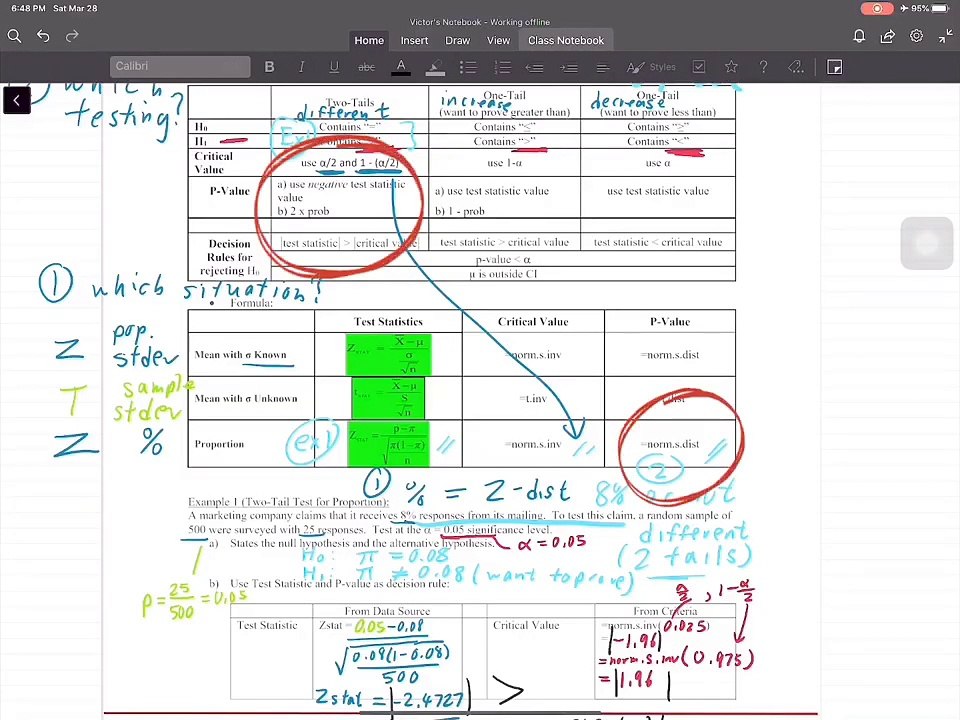 6:48 PM Sat Mar 28
95%
Victor's Notebook - Working offline
Home Insert Draw View Class Notebook
Calibri B I U abc A Styles
which
testing?
Two-Tails
different
One-Tail
increase
(want to prove greater than)
One-Tail
decrease
(want to prove less than)
H₀ Contains "=" Contains "≤" Contains "≥"
H₁ Contains ">" Contains "<"
Ex1
Critical Value use α/2 and 1 - (α/2) use 1-α use α
P-Value a) use negative test statistic value a) use test statistic value use test statistic value
b) 2 x prob b) 1 - prob
Decision Rules for rejecting H₀ |test statistic| > |critical value| test statistic > critical value test statistic < critical value
p-value < α
μ is outside CI
① which situation?
• Formula:
Test Statistics Critical Value P-Value
Z pop. stdev
Mean with σ Known Z_STAT = (X̄ − μ) / (σ/√n) =norm.s.inv =norm.s.dist
T sample stdev
Mean with σ Unknown t_STAT = (X̄ − μ) / (S/√n) =t.inv
Z %
Proportion ex1 Z_STAT = (p − π) / √(π(1−π)/n) =norm.s.inv =norm.s.dist
②
① % = Z-dist 8%
Example 1 (Two-Tail Test for Proportion):
A marketing company claims that it receives 8% responses from its mailing. To test this claim, a random sample of
500 were surveyed with 25 responses. Test at the α = 0.05 significance level.
different
(2 tails)
a) States the null hypothesis and the alternative hypothesis.
α = 0.05
H₀: π = 0.08
H₁: π ≠ 0.08 (want to prove)
b) Use Test Statistic and P-value as decision rule:
p = 25/500 = 0.05
α/2 , 1-α/2
From Data Source From Criteria
Test Statistic Zstat = 0.05-0.08 Critical Value =norm.s.inv(0.025)
√(0.08(1-0.08)/500) = |-1.96|
=norm.s.inv(0.975)
Zstat = |-2.4727| > = |1.96|